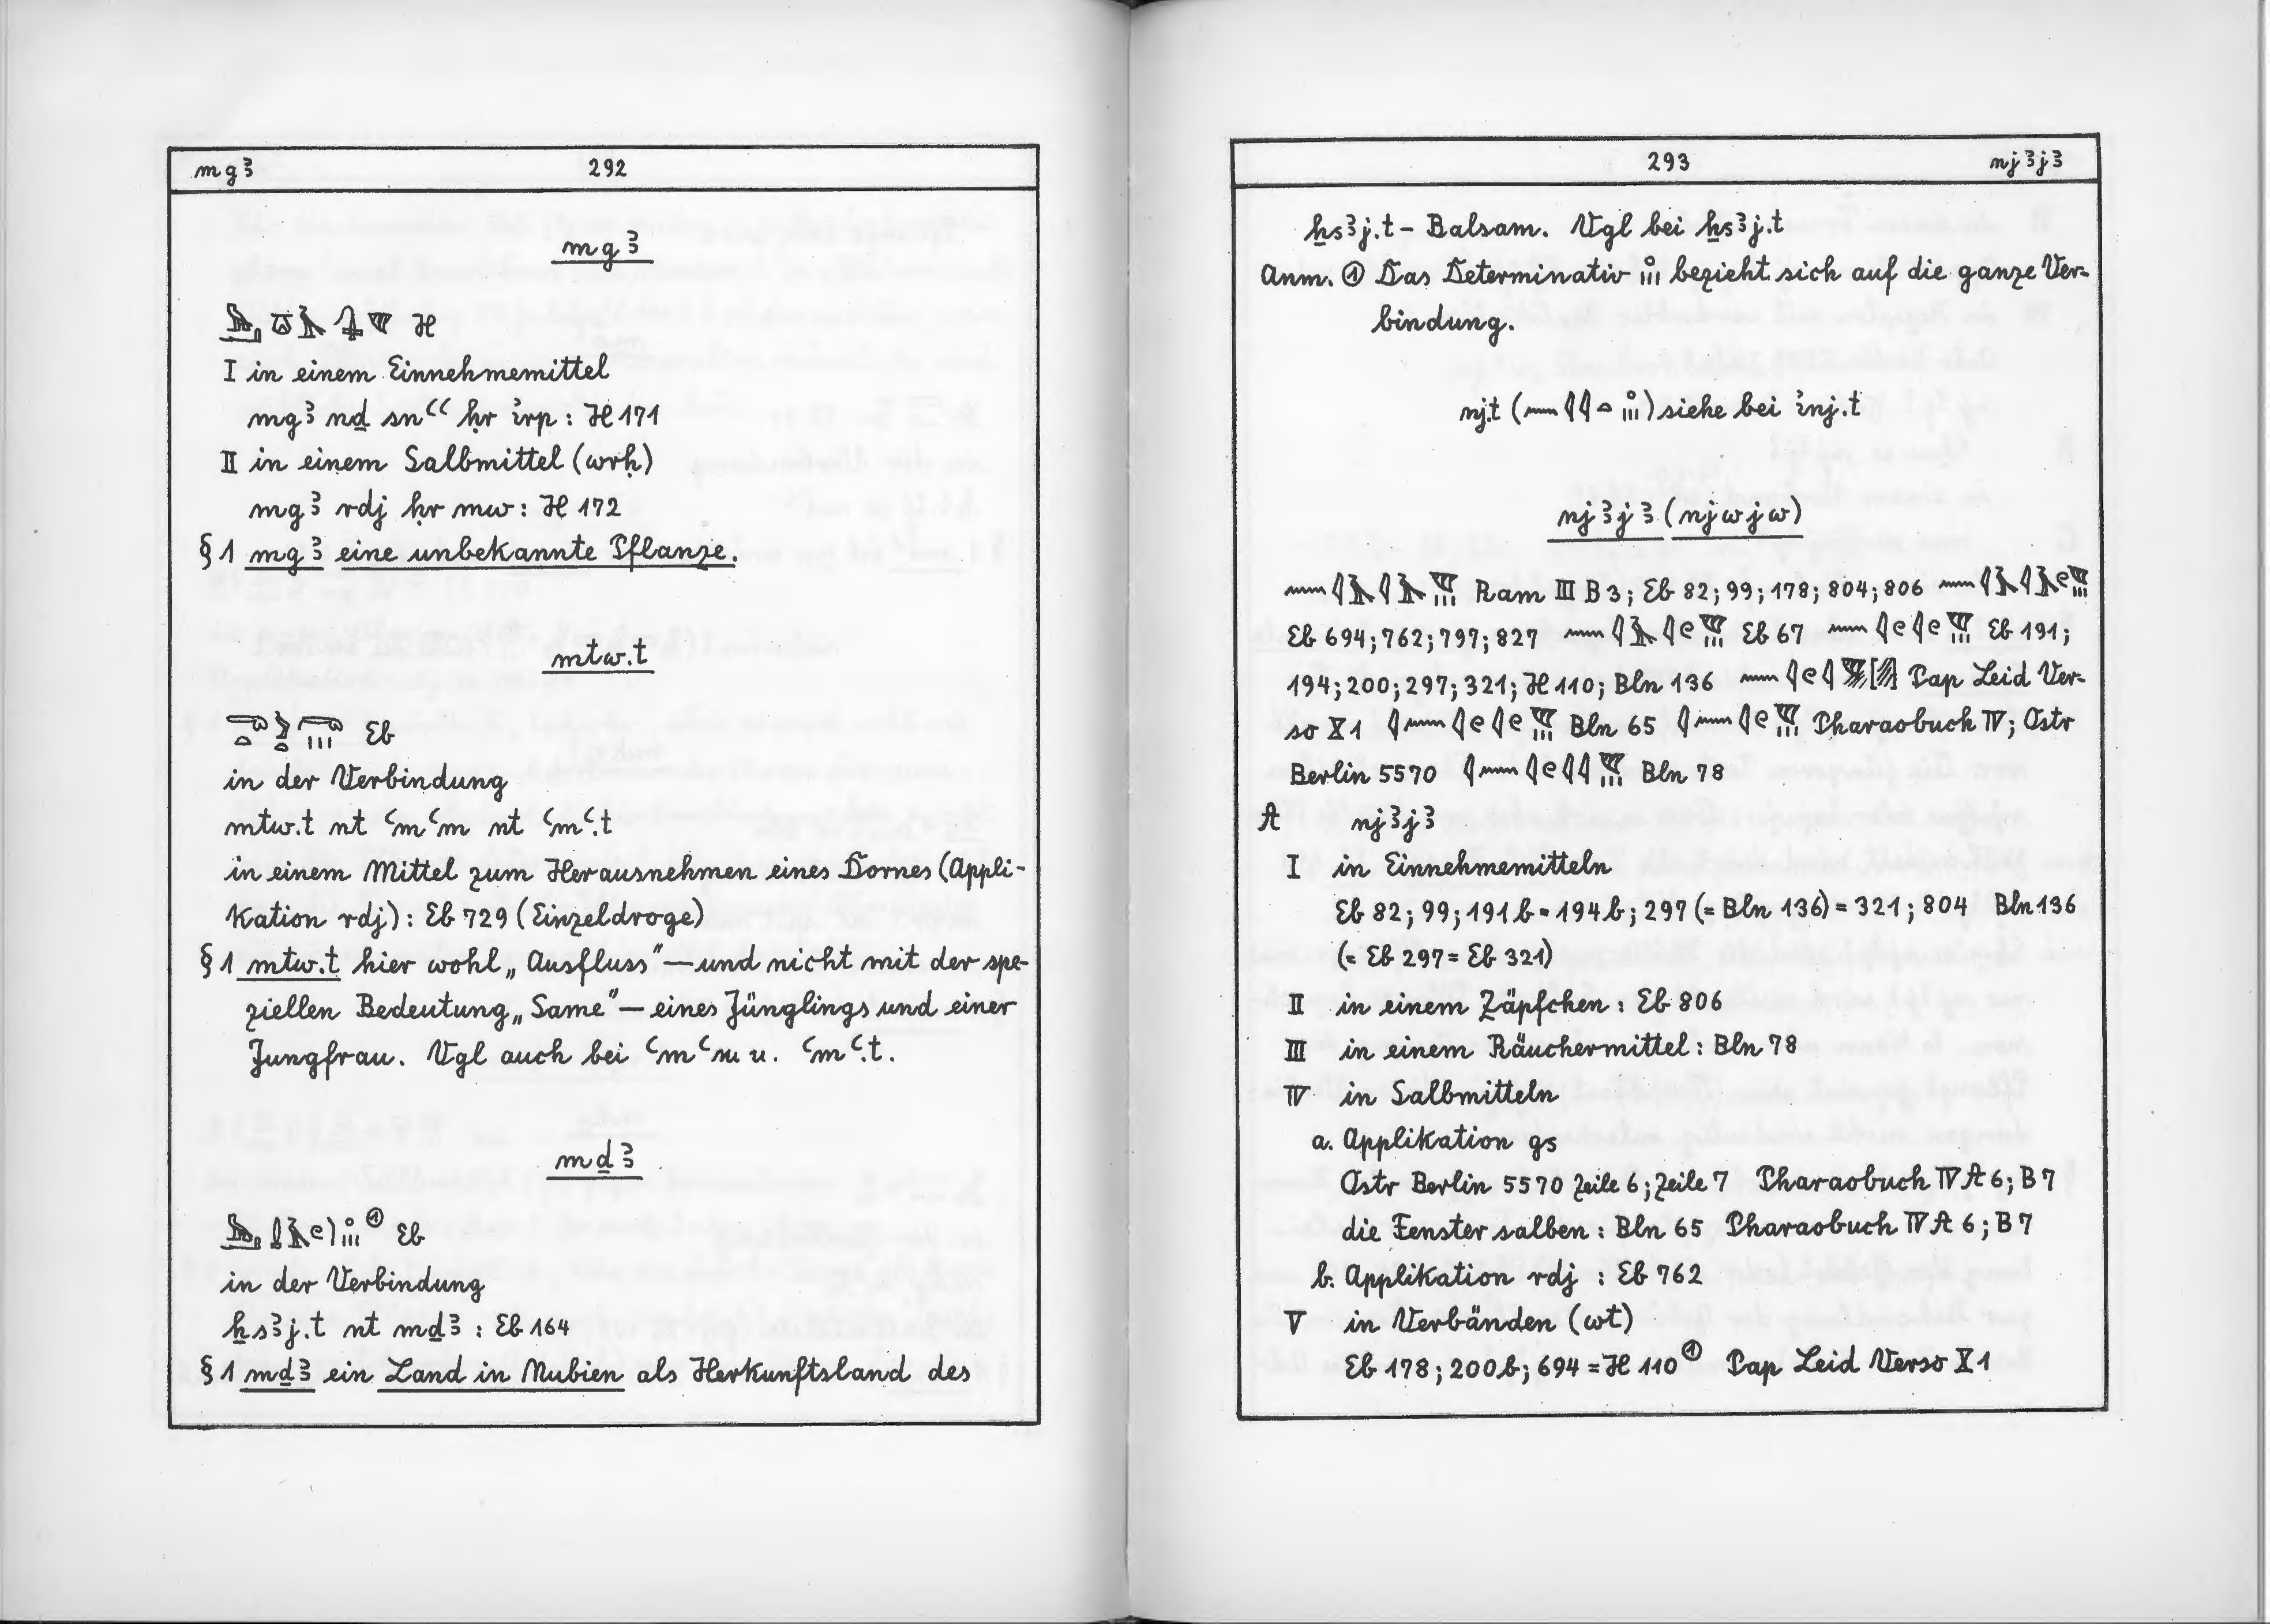 mgꜣ 292
mgꜣ
H
I in einem Einnehmemittel
mgꜣ nḏ snꜥꜥ ḥr ı͗rp : H 171
II in einem Salbmittel (wrḥ)
mgꜣ rdj ḥr mw : H 172
§ 1 mgꜣ eine unbekannte Pflanze.
mtw.t
Eb
in der Verbindung
mtw.t nt ꜥmꜥm nt ꜥmꜥ.t
in einem Mittel zum Herausnehmen eines Dornes (Appli-
kation rdj) : Eb 729 (Einzeldroge)
§ 1 mtw.t hier wohl „Ausfluss" — und nicht mit der spe-
ziellen Bedeutung „Same" — eines Jünglings und einer
Jungfrau. Vgl auch bei ꜥmꜥm u. ꜥmꜥ.t.
mḏꜣ
① Eb
in der Verbindung
ẖsꜣj.t nt mḏꜣ : Eb 164
§ 1 mḏꜣ ein Land in Nubien als Herkunftsland des
293 njꜣjꜣ
ẖsꜣj.t - Balsam. Vgl bei ẖsꜣj.t
Anm. ① Das Determinativ bezieht sich auf die ganze Ver-
bindung.
nj.t ( ) siehe bei ı͗nj.t
njꜣjꜣ (njwjw)
Ram III B 3; Eb 82; 99; 178; 804; 806
Eb 694; 762; 797; 827 Eb 67 Eb 191;
194; 200; 297; 321; H 110; Bln 136 Pap Leid Ver-
so X 1 Bln 65 Pharaobuch IV; Ostr
Berlin 5570 Bln 78
A njꜣjꜣ
I in Einnehmemitteln
Eb 82; 99; 191b = 194b; 297 (= Bln 136) = 321; 804 Bln 136
(= Eb 297 = Eb 321)
II in einem Zäpfchen : Eb 806
III in einem Räuchermittel : Bln 78
IV in Salbmitteln
a. Applikation gs
Ostr Berlin 5570 Zeile 6; Zeile 7 Pharaobuch IV A 6; B 7
die Fenster salben : Bln 65 Pharaobuch IV A 6; B 7
b. Applikation rdj : Eb 762
V in Verbänden (wt)
Eb 178; 200b; 694 = H 110 ① Pap Leid Verso X 1